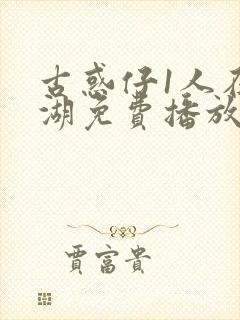 古惑仔1人在
湖免费播放
贾富贵